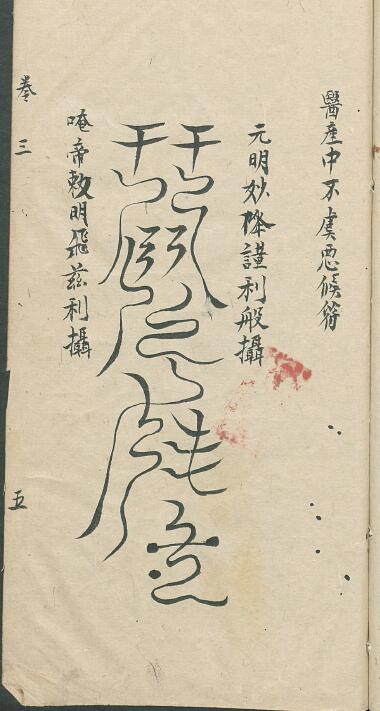 醫産中不虞惡候符
元明妙降謹利般攝
唵帝敕明飛茲利攝
卷三
五